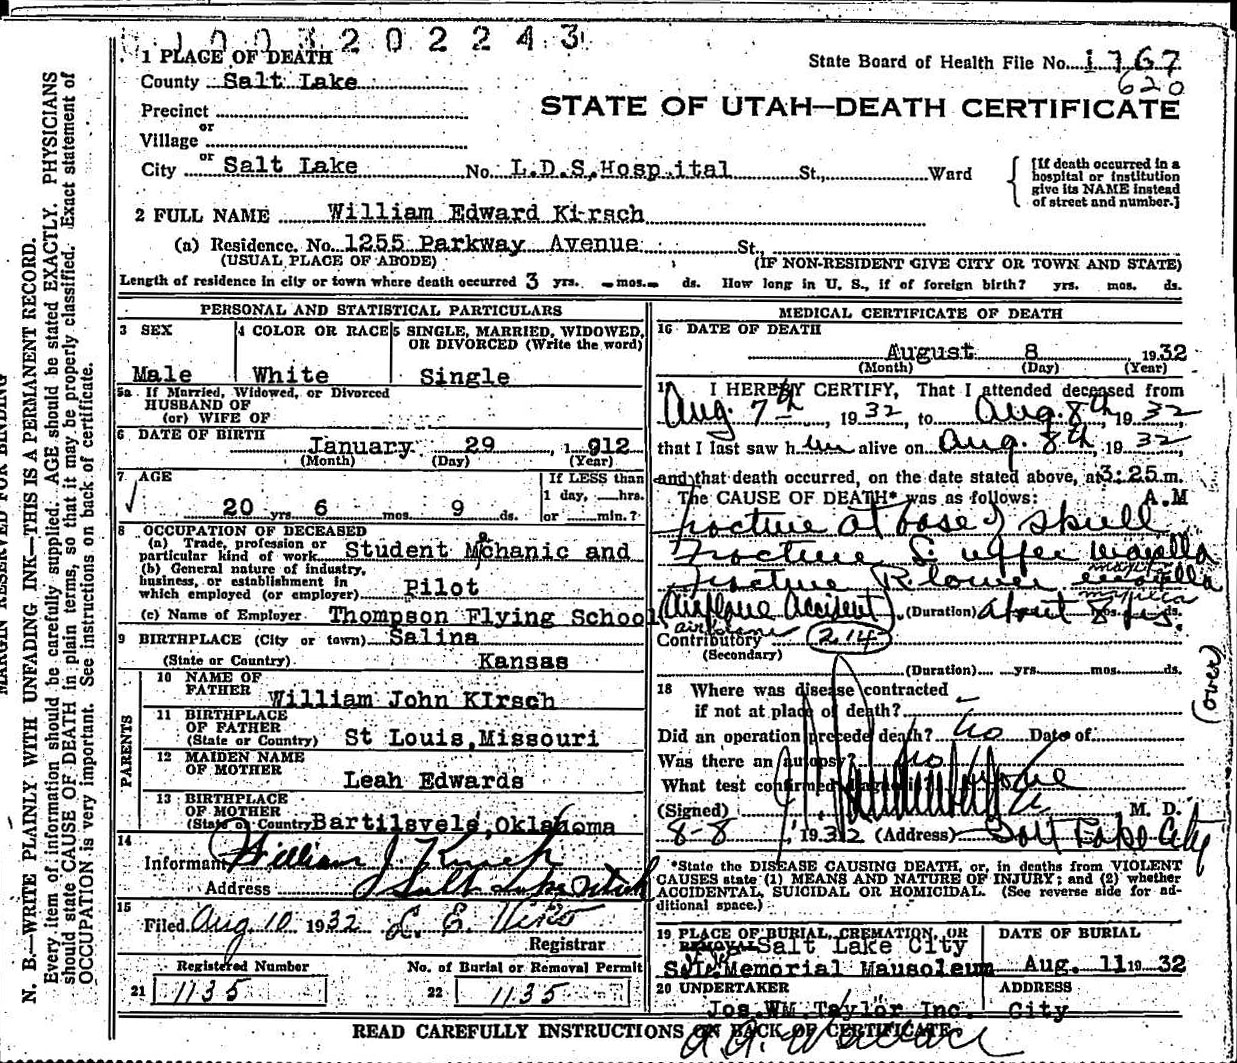 1003202243
1 PLACE OF DEATH
State Board of Health File No. 1767
620
County Salt Lake
STATE OF UTAH—DEATH CERTIFICATE
Precinct
or
Village
or
City Salt Lake No. L.D.S.Hospital St., Ward
[If death occurred in a hospital or institution give its NAME instead of street and number.]
2 FULL NAME William Edward Kirsch
(a) Residence. No. 1255 Parkway Avenue St.,
(USUAL PLACE OF ABODE) (IF NON-RESIDENT GIVE CITY OR TOWN AND STATE)
Length of residence in city or town where death occurred 3 yrs. - mos. - ds. How long in U. S., if of foreign birth? yrs. mos. ds.
PERSONAL AND STATISTICAL PARTICULARS
3 SEX
Male
4 COLOR OR RACE
White
5 SINGLE, MARRIED, WIDOWED, OR DIVORCED (Write the word)
Single
5a If Married, Widowed, or Divorced
HUSBAND OF
(or) WIFE OF
6 DATE OF BIRTH
January 29, 1912
(Month) (Day) (Year)
7 AGE
20 yrs. 6 mos. 9 ds.
If LESS than
1 day, hrs.
or min.?
8 OCCUPATION OF DECEASED
(a) Trade, profession or particular kind of work Student Mchanic and
(b) General nature of industry, business, or establishment in which employed (or employer) Pilot
(c) Name of Employer Thompson Flying School
9 BIRTHPLACE (City or town) Salina
(State or Country) Kansas
PARENTS
10 NAME OF FATHER William John KIrsch
11 BIRTHPLACE OF FATHER (State or Country) St Louis,Missouri
12 MAIDEN NAME OF MOTHER Leah Edwards
13 BIRTHPLACE OF MOTHER (State or Country) Bartilsvele,Oklahoma
14
Informant William J Kirsch
Address Salt Lake Utah
15
Filed Aug 10 1932
Registrar
Registered Number
21 1135
No. of Burial or Removal Permit
22 1135
MEDICAL CERTIFICATE OF DEATH
16 DATE OF DEATH
August 8, 1932
(Month) (Day) (Year)
17 I HEREBY CERTIFY, That I attended deceased from
Aug. 7th, 1932 to Aug. 8th, 1932,
that I last saw him alive on Aug. 8th, 1932,
and that death occurred, on the date stated above, at 3:25 m.
The CAUSE OF DEATH* was as follows: A.M
fracture at base of skull
Fracture L. upper maxilla
fracture R. lower maxilla
(Airplane Accident) (Duration) about 8 hrs. ds.
Contributory 214
(Secondary)
(Duration) yrs. mos. ds.
18 Where was disease contracted
if not at place of death? -
Did an operation precede death? no Date of
Was there an autopsy? no
What test confirmed diagnosis?
(Signed) M. D.
8-8, 1932 (Address) Salt Lake City
(over)
*State the DISEASE CAUSING DEATH, or, in deaths from VIOLENT
CAUSES state (1) MEANS AND NATURE OF INJURY; and (2) whether
ACCIDENTAL, SUICIDAL OR HOMICIDAL. (See reverse side for ad-
ditional space.)
19 PLACE OF BURIAL, CREMATION, OR REMOVAL Salt Lake City
S.L.Memorial Mausoleum
DATE OF BURIAL
Aug. 11 1932
20 UNDERTAKER
Jos.Wm.Taylor Inc.
ADDRESS
City
READ CAREFULLY INSTRUCTIONS ON BACK OF CERTIFICATE
MARGIN RESERVED FOR BINDING
N. B.—WRITE PLAINLY WITH UNFADING INK—THIS IS A PERMANENT RECORD.
Every item of information should be carefully supplied. AGE should be stated EXACTLY. PHYSICIANS
should state CAUSE OF DEATH in plain terms, so that it may be properly classified. Exact statement of
OCCUPATION is very important. See instructions on back of certificate.